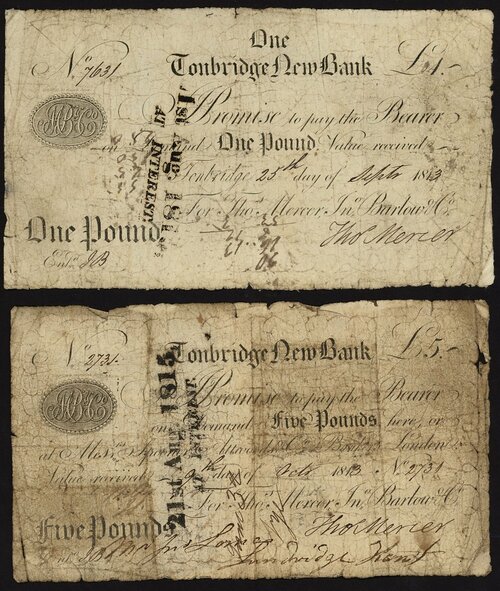 One
No. 7631 Tonbridge New Bank £1.-
I Promise to pay the Bearer
on Demand One Pound Value received
Tonbridge 25th day of Septr 1813
For Thos. Mercer Jnr. Barlow & Co.
One Pound Thos Mercer
Entd. JB
1st Aug 1815
AT INTEREST
No. 2731 Tonbridge New Bank £5.-
I Promise to pay the Bearer
on Demand Five Pounds here, or
at Messrs. London
Value received day of Octr 1813 No. 2731
For Thos. Mercer Jnr. Barlow & Co.
Five Pounds Thos Mercer
Entd.
Kent
21st Aug. 1815
AT INTEREST